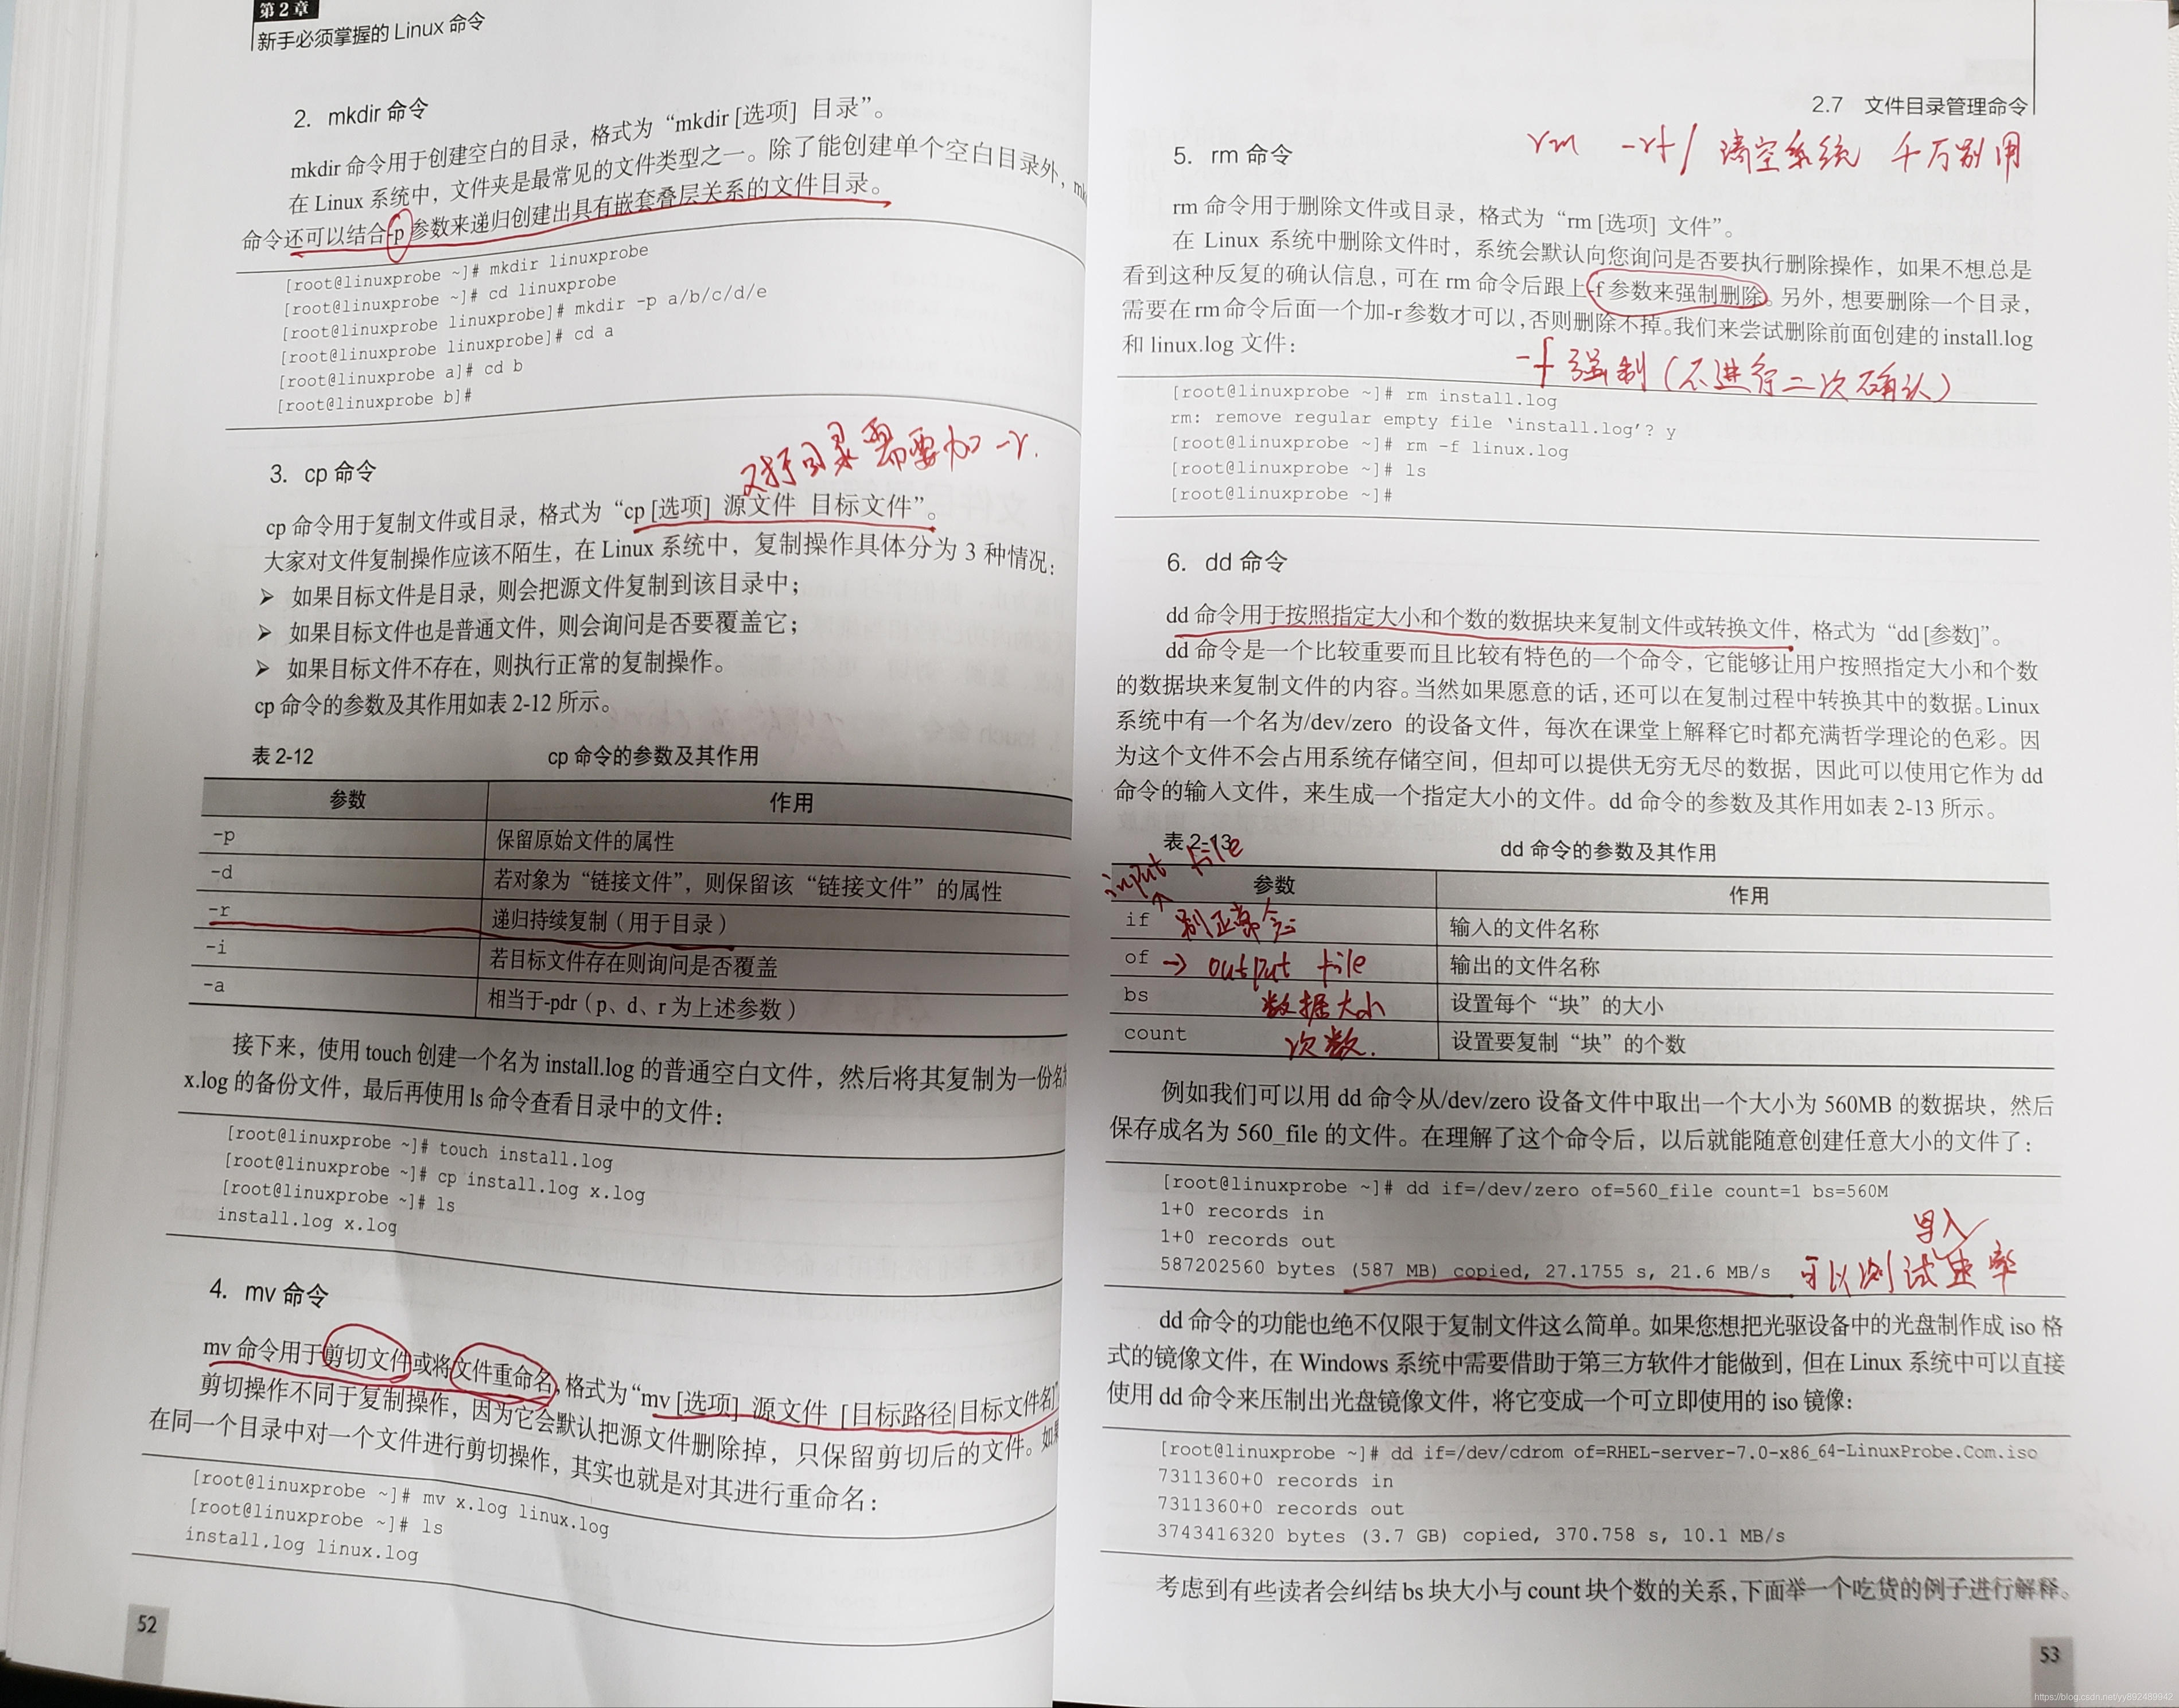 第2章
新手必须掌握的 Linux 命令
2. mkdir 命令
mkdir 命令用于创建空白的目录，格式为“mkdir [选项] 目录”。
在 Linux 系统中，文件夹是最常见的文件类型之一。除了能创建单个空白目录外，mk
命令还可以结合-p 参数来递归创建出具有嵌套叠层关系的文件目录。
[root@linuxprobe ~]# mkdir linuxprobe
[root@linuxprobe ~]# cd linuxprobe
[root@linuxprobe linuxprobe]# mkdir -p a/b/c/d/e
[root@linuxprobe linuxprobe]# cd a
[root@linuxprobe a]# cd b
[root@linuxprobe b]#
对于目录需要加 -r.
3. cp 命令
cp 命令用于复制文件或目录，格式为“cp [选项] 源文件 目标文件”。
大家对文件复制操作应该不陌生，在 Linux 系统中，复制操作具体分为 3 种情况：
➢ 如果目标文件是目录，则会把源文件复制到该目录中；
➢ 如果目标文件也是普通文件，则会询问是否要覆盖它；
➢ 如果目标文件不存在，则执行正常的复制操作。
cp 命令的参数及其作用如表 2-12 所示。
表 2-12 cp 命令的参数及其作用
参数 作用
-p 保留原始文件的属性
-d 若对象为“链接文件”，则保留该“链接文件”的属性
-r 递归持续复制（用于目录）
-i 若目标文件存在则询问是否覆盖
-a 相当于-pdr（p、d、r 为上述参数）
接下来，使用 touch 创建一个名为 install.log 的普通空白文件，然后将其复制为一份名为
x.log 的备份文件，最后再使用 ls 命令查看目录中的文件：
[root@linuxprobe ~]# touch install.log
[root@linuxprobe ~]# cp install.log x.log
[root@linuxprobe ~]# ls
install.log x.log
4. mv 命令
mv 命令用于剪切文件或将文件重命名，格式为“mv [选项] 源文件 [目标路径|目标文件名]”
剪切操作不同于复制操作，因为它会默认把源文件删除掉，只保留剪切后的文件。如果
在同一个目录中对一个文件进行剪切操作，其实也就是对其进行重命名：
[root@linuxprobe ~]# mv x.log linux.log
[root@linuxprobe ~]# ls
install.log linux.log
52
2.7 文件目录管理命令
rm -rf / 清空系统 千万别用
5. rm 命令
rm 命令用于删除文件或目录，格式为“rm [选项] 文件”。
在 Linux 系统中删除文件时，系统会默认向您询问是否要执行删除操作，如果不想总是
看到这种反复的确认信息，可在 rm 命令后跟上-f 参数来强制删除。另外，想要删除一个目录，
需要在 rm 命令后面一个加-r 参数才可以，否则删除不掉。我们来尝试删除前面创建的 install.log
和 linux.log 文件：
-f 强制（不进行二次确认）
[root@linuxprobe ~]# rm install.log
rm: remove regular empty file ‘install.log’? y
[root@linuxprobe ~]# rm -f linux.log
[root@linuxprobe ~]# ls
[root@linuxprobe ~]#
6. dd 命令
dd 命令用于按照指定大小和个数的数据块来复制文件或转换文件，格式为“dd [参数]”。
dd 命令是一个比较重要而且比较有特色的一个命令，它能够让用户按照指定大小和个数
的数据块来复制文件的内容。当然如果愿意的话，还可以在复制过程中转换其中的数据。Linux
系统中有一个名为/dev/zero 的设备文件，每次在课堂上解释它时都充满哲学理论的色彩。因
为这个文件不会占用系统存储空间，但却可以提供无穷无尽的数据，因此可以使用它作为 dd
命令的输入文件，来生成一个指定大小的文件。dd 命令的参数及其作用如表 2-13 所示。
表 2-13 dd 命令的参数及其作用
input file
参数 作用
if 输入的文件名称
of → output file 输出的文件名称
bs 数据大小 设置每个“块”的大小
count 次数. 设置要复制“块”的个数
例如我们可以用 dd 命令从/dev/zero 设备文件中取出一个大小为 560MB 的数据块，然后
保存成名为 560_file 的文件。在理解了这个命令后，以后就能随意创建任意大小的文件了：
[root@linuxprobe ~]# dd if=/dev/zero of=560_file count=1 bs=560M
1+0 records in
1+0 records out
587202560 bytes (587 MB) copied, 27.1755 s, 21.6 MB/s
可以测试写入速率
dd 命令的功能也绝不仅限于复制文件这么简单。如果您想把光驱设备中的光盘制作成 iso 格
式的镜像文件，在 Windows 系统中需要借助于第三方软件才能做到，但在 Linux 系统中可以直接
使用 dd 命令来压制出光盘镜像文件，将它变成一个可立即使用的 iso 镜像：
[root@linuxprobe ~]# dd if=/dev/cdrom of=RHEL-server-7.0-x86_64-LinuxProbe.Com.iso
7311360+0 records in
7311360+0 records out
3743416320 bytes (3.7 GB) copied, 370.758 s, 10.1 MB/s
考虑到有些读者会纠结 bs 块大小与 count 块个数的关系，下面举一个吃货的例子进行解释。
53
https://blog.csdn.net/yy892489942